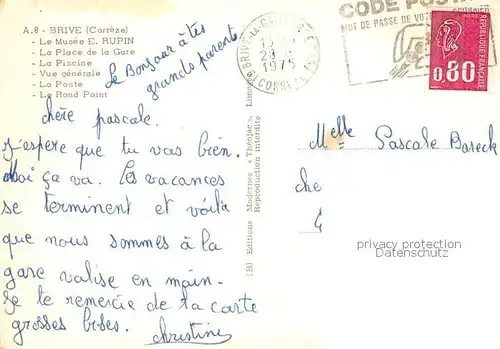 A.8 - BRIVE (Corrèze)
- Le Musée E. RUPIN
- La Place de la Gare
- La Piscine
- Vue générale
- La Poste
- Le Rond Point
Le Bonsoir à tes
grands parents
chère pascale.
J'espère que tu vas bien.
Moi ça va. Les vacances
se terminent et voilà
que nous sommes à la
gare valise en main.
Je te remercie de ta carte
grosses bises.
christine
(B) Editions Modernes « Théojac », Limo
Reproduction interdite
BRIVE-LA-GAILLARDE
1975
CORREZE
CODE POSTAL
MOT DE PASSE DE VOTRE COURRIER
0,80
REPUBLIQUE FRANÇAISE
Melle Pascale Bareck
che
privacy protection
www.delcampe.de